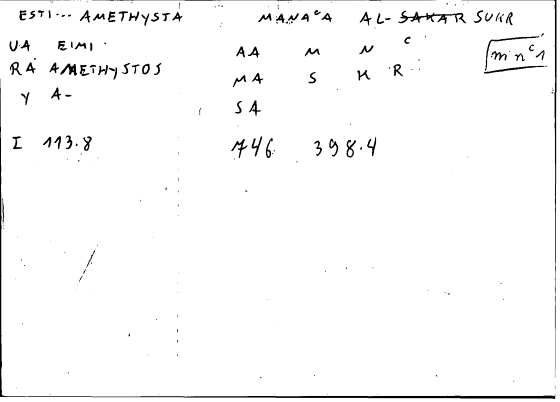 ESTI... AMETHYSTA MANAᶜA AL- SAKAR SUKR
UA EIMI AA M N ᶜ mnᶜ1
RA AMETHYSTOS MA S K R
y A- SA
I 113.8 746 398.4